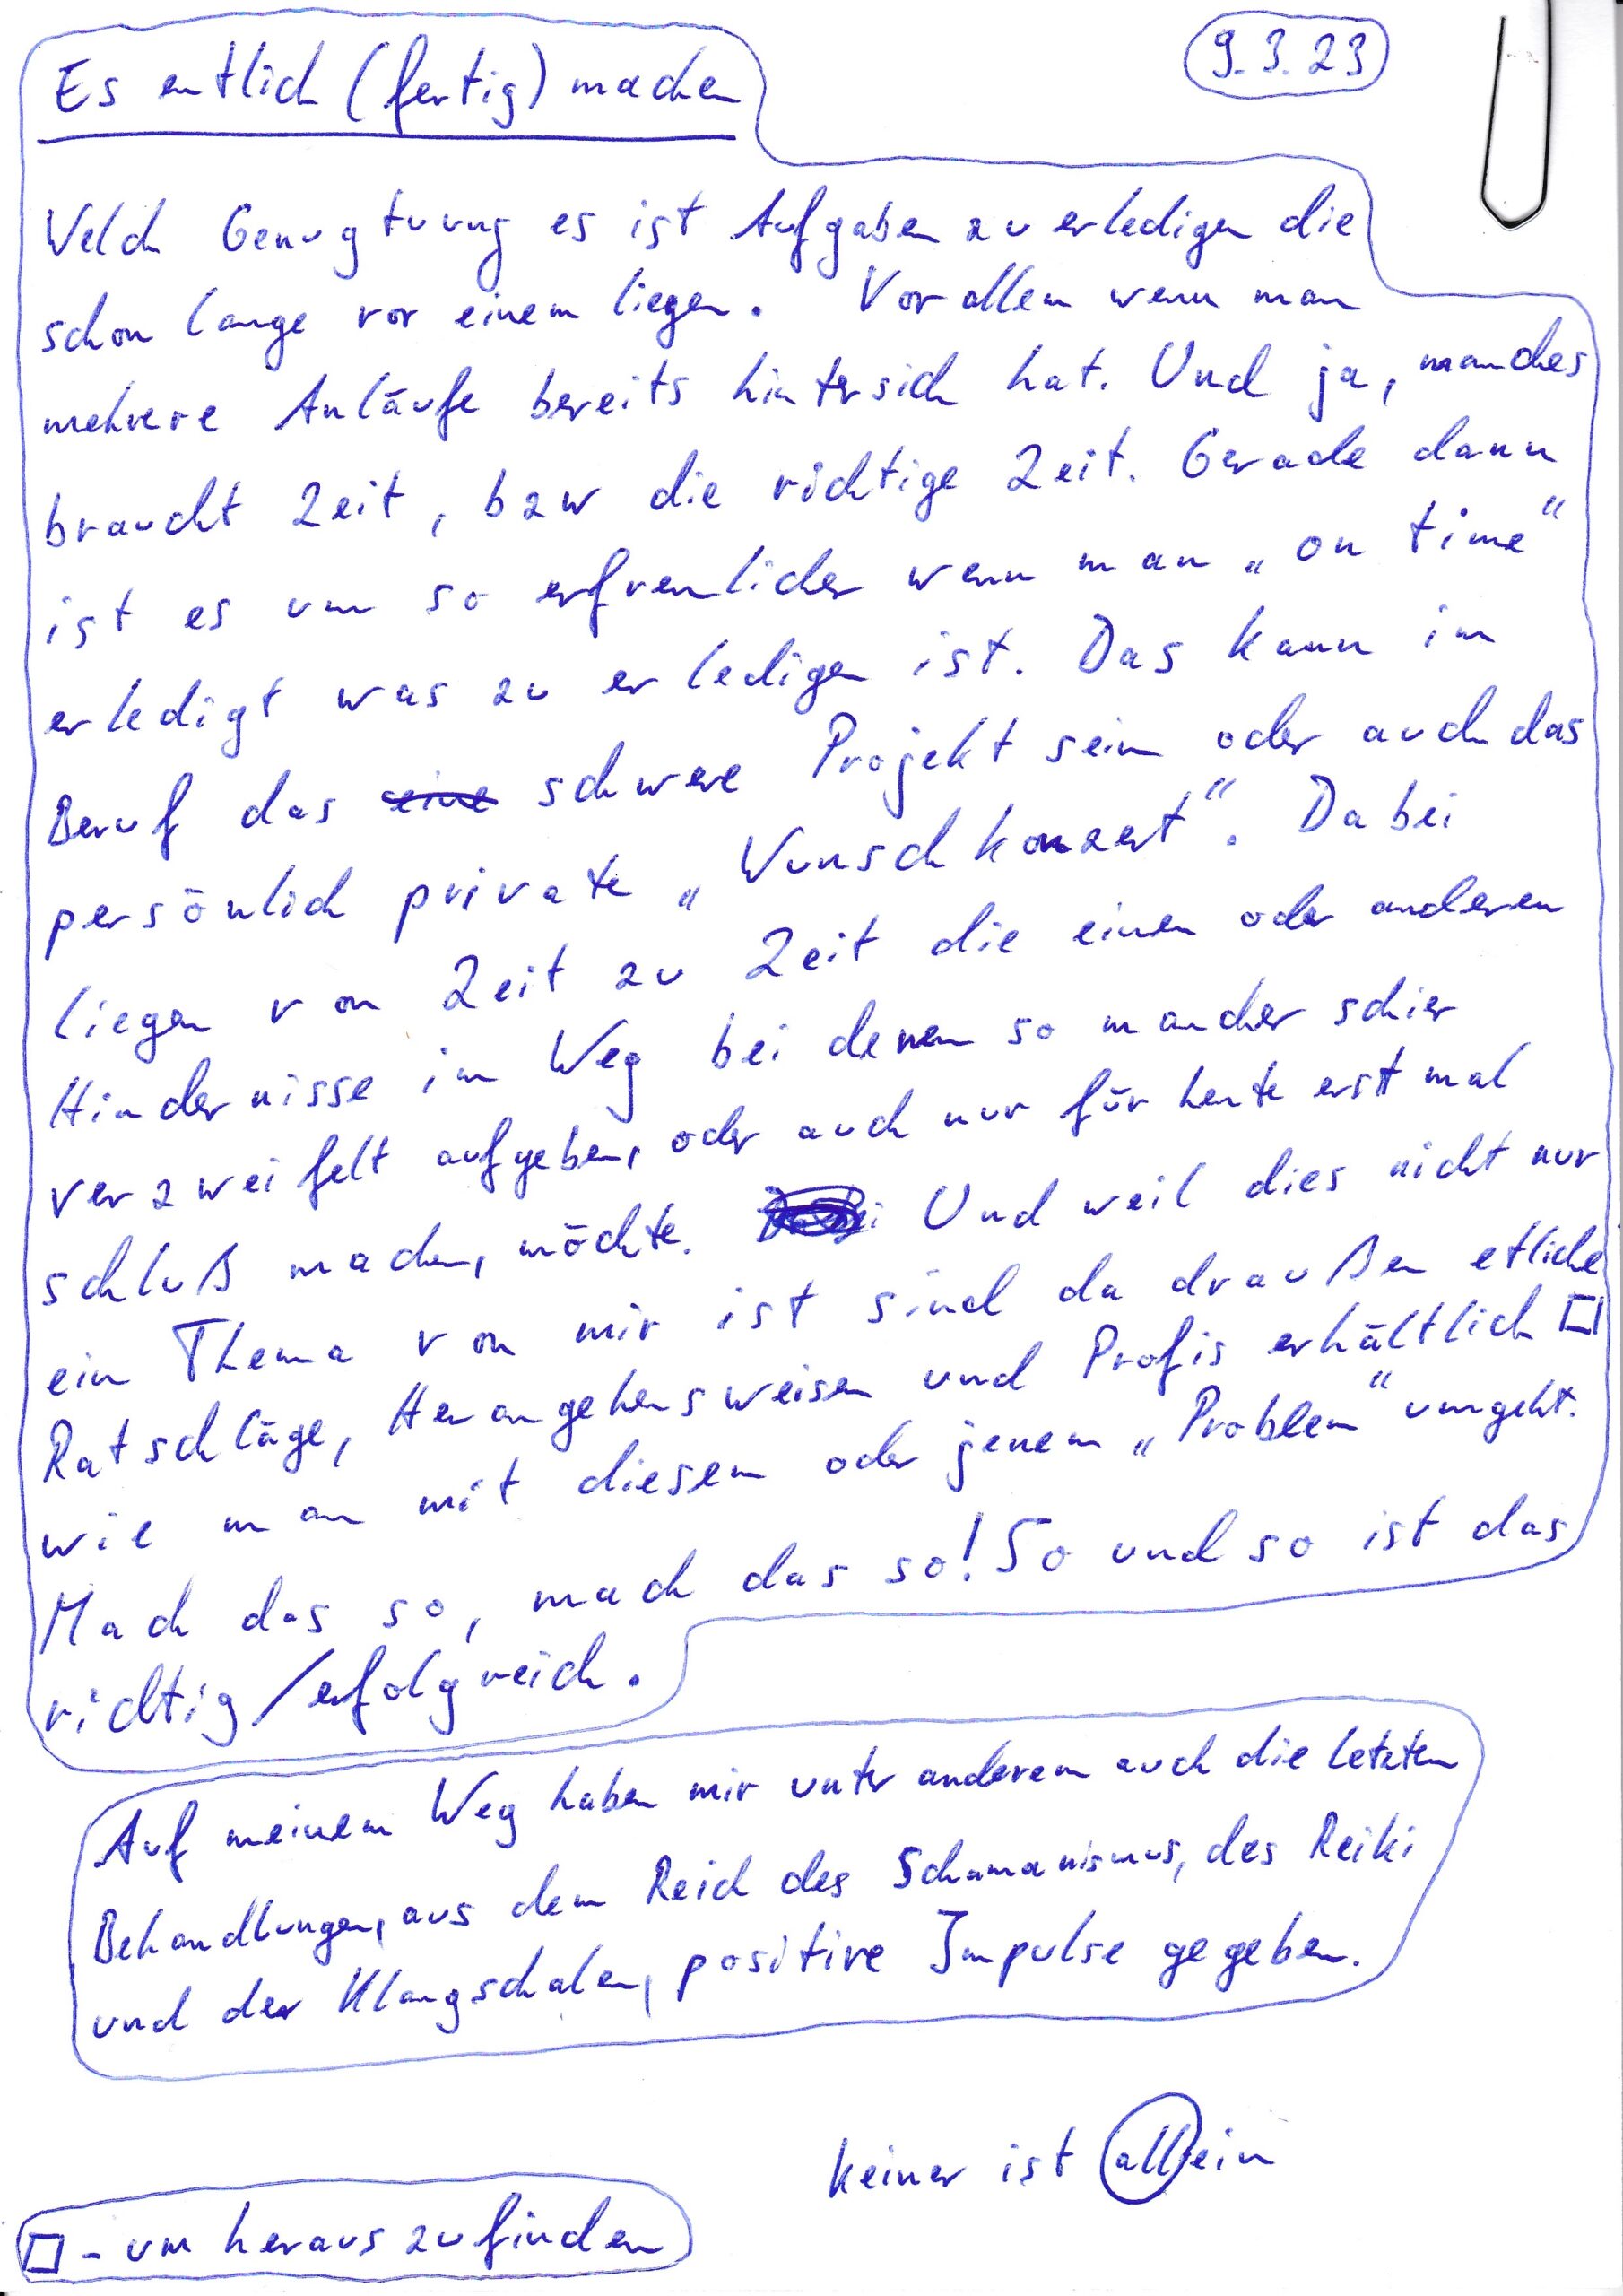 9.3.23
Es entlich (fertig) machen
Welch Genugtuung es ist Aufgaben zu erledigen die
schon lange vor einem liegen. Vor allem wenn man
mehrere Anläufe bereits hinter sich hat. Und ja, manches
braucht Zeit, bzw die richtige Zeit. Gerade dann
ist es um so erfreulicher wenn man „on time“
erledigt was zu erledigen ist. Das kann im
Beruf das eine schwere Projekt sein oder auch das
persönlich private „Wunschkonzert“. Dabei
liegen von Zeit zu Zeit die einen oder anderen
Hindernisse im Weg bei denen so mancher schier
verzweifelt aufgeben, oder auch nur für heute erst mal
schluß machen, möchte. Und weil dies nicht nur
ein Thema von mir ist sind da draußen etliche
Ratschläge, Herangehensweisen und Profis erhältlich □
wie man mit diesem oder jenem „Problem“ umgeht.
Mach das so, mach das so! So und so ist das
richtig/erfolgreich.
Auf meinem Weg haben mir unter anderem auch die letzten
Behandlungen, aus dem Reich des Schamanismus, des Reiki
und der Klangschalen, positive Impulse gegeben.
keiner ist allein
□ - um herauszufinden